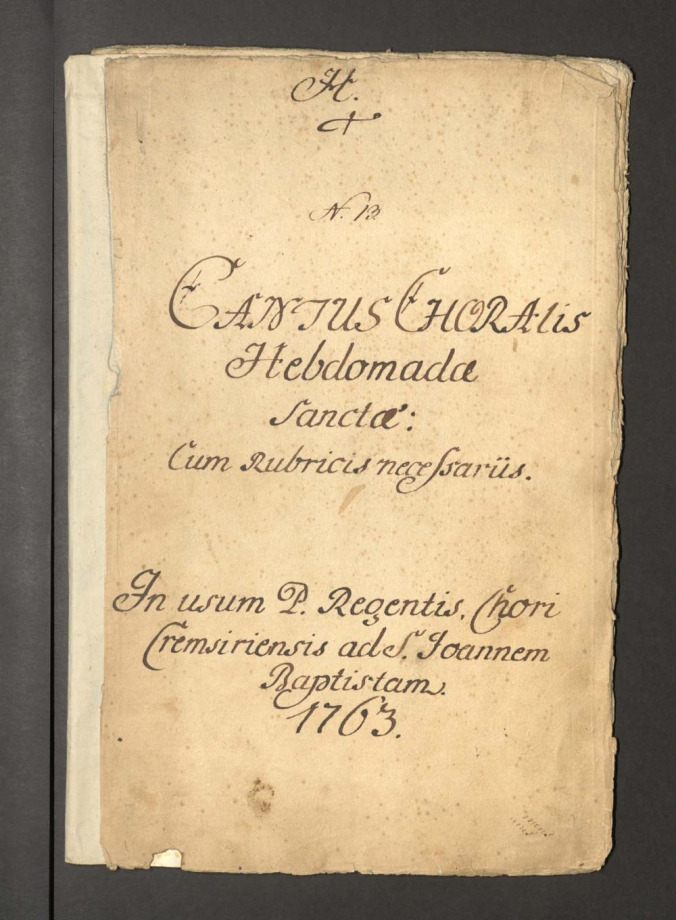 H.
N. 13
CANTUS CHORAlis
Hebdomadæ
Sanctæ:
Cum Rubricis necessariis.
In usum P. Regentis. Chori
Cremsiriensis ad S. Joannem
Baptistam.
1763.